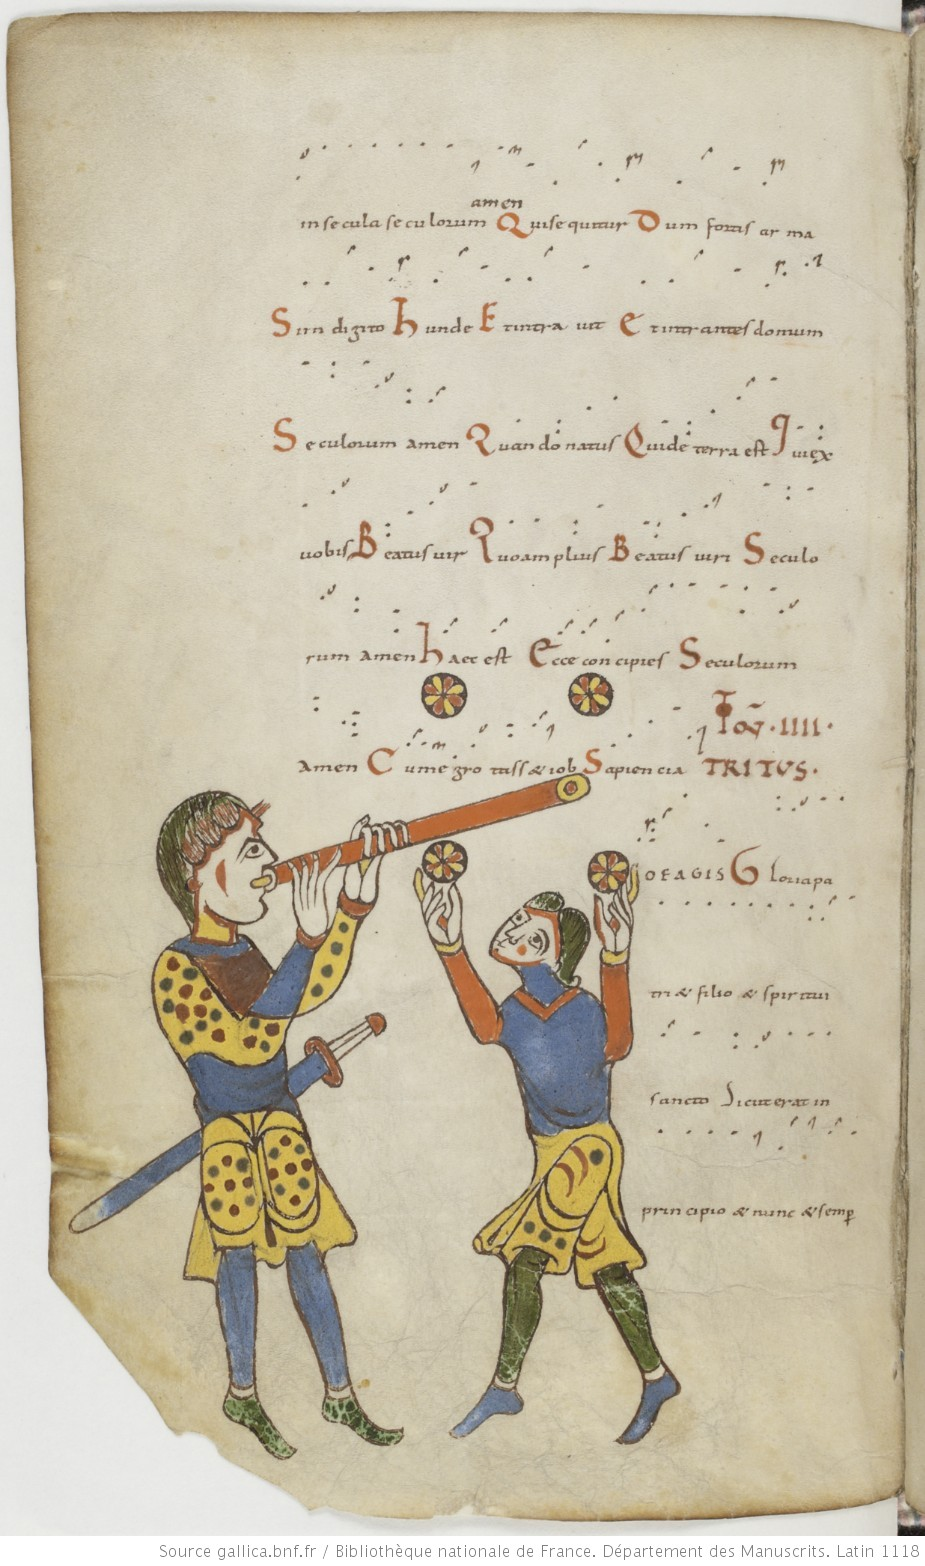 amen
in secula seculorum Quisequitur Dum fortis arma
Sirindigito hunde Etintra uit Etintrantes domum
Seculorum amen Quando natus Quide terra est
uobis Beatus uir Quo amplius Beatus uiri Seculo
rum amen haec est Ecce concipies Seculorum
IIII.
amen Cum egrotass& iob Sapiencia TRITUS.
NOEAGIS Gloria pa
tri & filio & spiritui
sancto Sicut erat in
principio & nunc & semp
Source gallica.bnf.fr / Bibliothèque nationale de France. Département des Manuscrits. Latin 1118